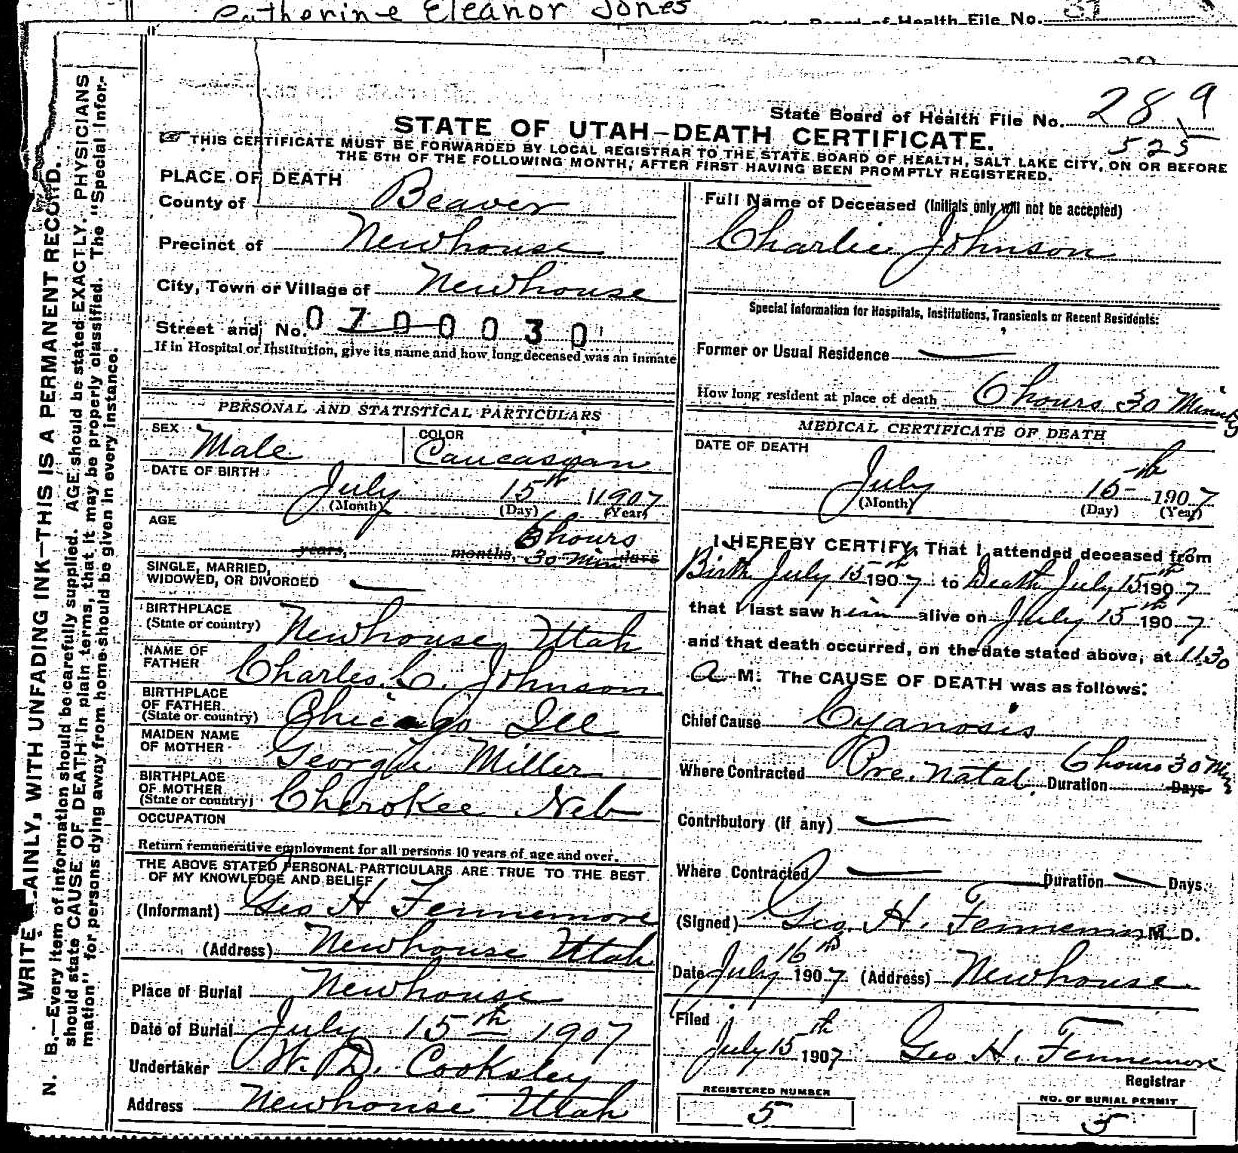 Catherine Eleanor Jones
State Board of Health File No. 289
525
STATE OF UTAH—DEATH CERTIFICATE.
☞ THIS CERTIFICATE MUST BE FORWARDED BY LOCAL REGISTRAR TO THE STATE BOARD OF HEALTH, SALT LAKE CITY, ON OR BEFORE
THE 5TH OF THE FOLLOWING MONTH, AFTER FIRST HAVING BEEN PROMPTLY REGISTERED.
PLACE OF DEATH
County of Beaver
Precinct of Newhouse
City, Town or Village of Newhouse
Street and No. 0700030
If in Hospital or Institution, give its name and how long deceased was an inmate
Full Name of Deceased (Initials only will not be accepted)
Charlie Johnson
Special Information for Hospitals, Institutions, Transients or Recent Residents:
Former or Usual Residence —
How long resident at place of death 6 hours 30 Minutes
PERSONAL AND STATISTICAL PARTICULARS
SEX Male
COLOR Caucasian
DATE OF BIRTH July 15th 1907
(Month) (Day) (Year)
AGE 6 hours
years, months, 30 Min days
SINGLE, MARRIED,
WIDOWED, OR DIVORCED —
BIRTHPLACE
(State or country) Newhouse, Utah
NAME OF
FATHER Charles C. Johnson
BIRTHPLACE
OF FATHER
(State or country) Chicago Ill
MAIDEN NAME
OF MOTHER Georgie Miller
BIRTHPLACE
OF MOTHER
(State or country) Cherokee Neb
OCCUPATION
Return remunerative employment for all persons 10 years of age and over.
THE ABOVE STATED PERSONAL PARTICULARS ARE TRUE TO THE BEST
OF MY KNOWLEDGE AND BELIEF
(Informant) Geo H Fennemore
(Address) Newhouse Utah
Place of Burial Newhouse
Date of Burial July 15th 1907
Undertaker W. D. Cooksley
Address Newhouse Utah
MEDICAL CERTIFICATE OF DEATH
DATE OF DEATH
July 15th 1907
(Month) (Day) (Year)
I HEREBY CERTIFY, That I attended deceased from
Birth July 15 1907 to Death July 15th 1907
that I last saw him alive on July 15th 1907
and that death occurred, on the date stated above, at 11.30
A M. The CAUSE OF DEATH was as follows:
Chief Cause Cyanosis
Where Contracted Pre. Natal. Duration 6 hours 30 Min Days
Contributory (if any) —
Where Contracted — Duration — Days
(Signed) Geo. H. Fennemore M. D.
Date July 16th 1907 (Address) Newhouse
Filed
July 15th 1907 Geo H. Fennemore
Registrar
REGISTERED NUMBER
5
NO. OF BURIAL PERMIT
5
WRITE PLAINLY, WITH UNFADING INK—THIS IS A PERMANENT RECORD.
N. B.—Every item of information should be carefully supplied. AGE should be stated EXACTLY. PHYSICIANS
should state CAUSE OF DEATH in plain terms, that it may be properly classified. The "Special Infor-
mation" for persons dying away from home should be given in every instance.